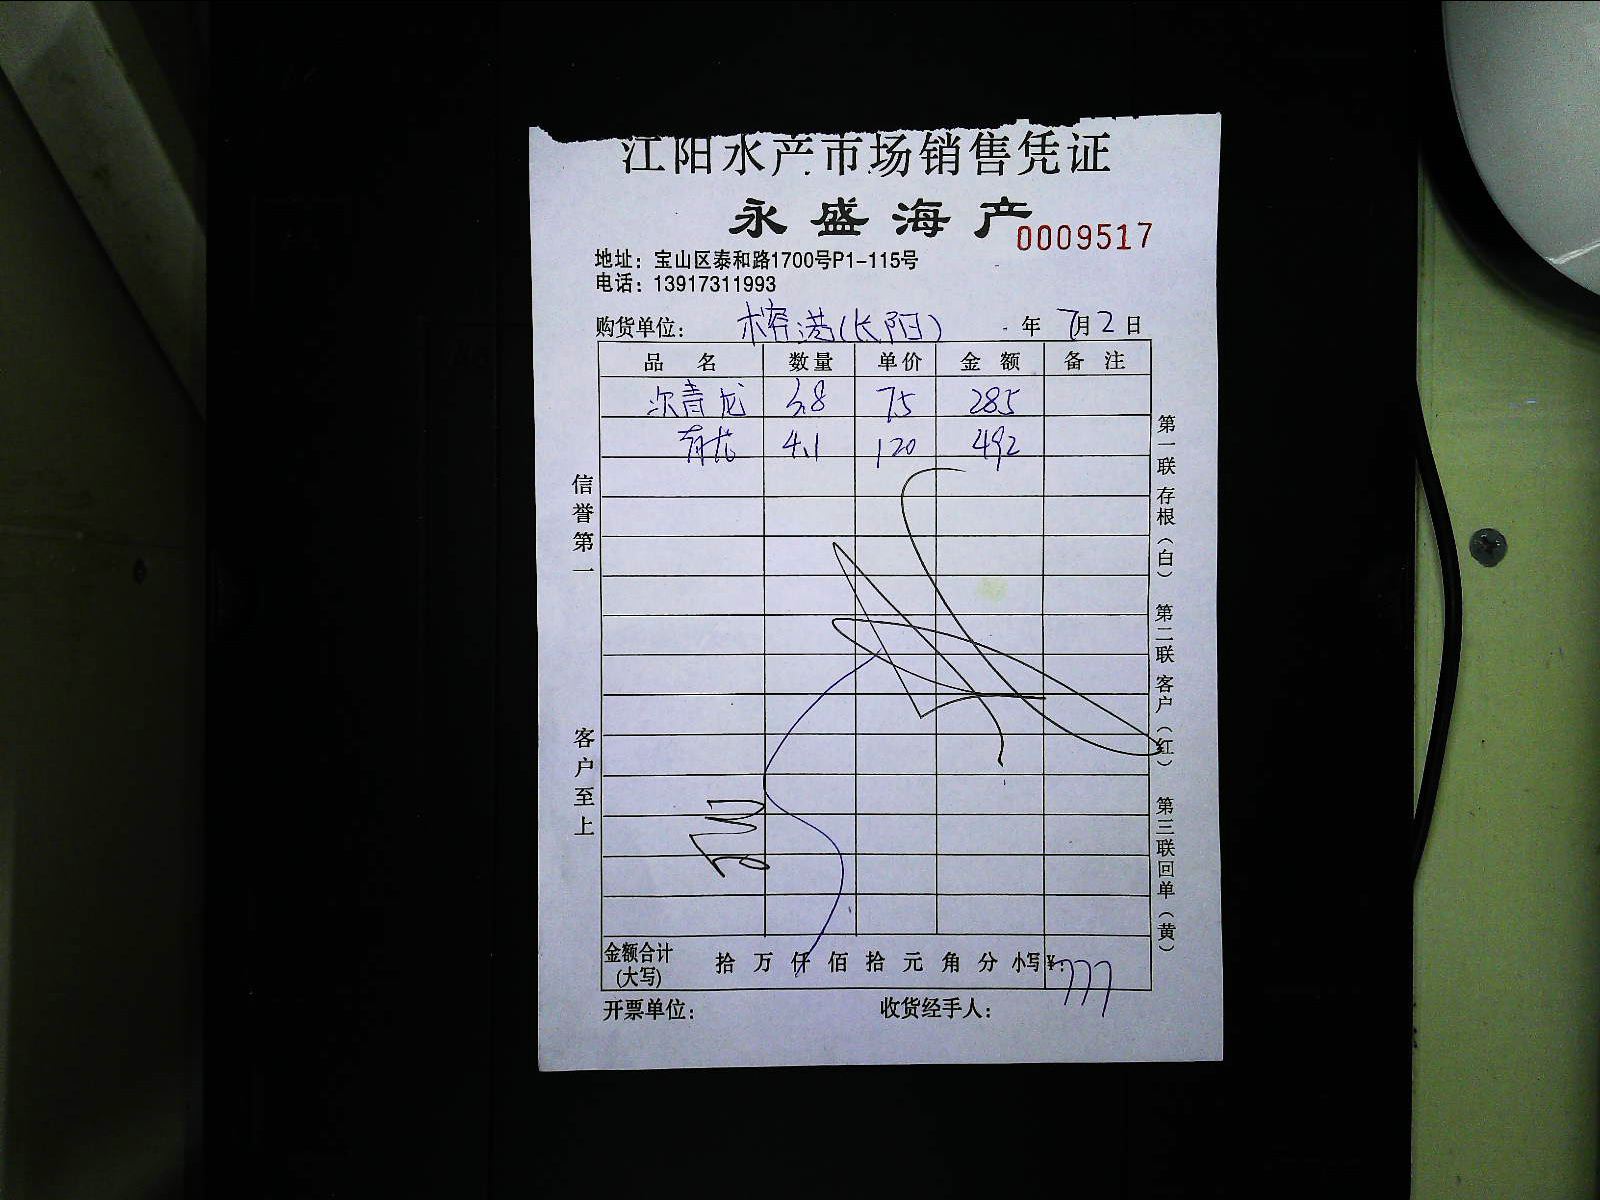 江阳水产市场销售凭证
永盛海产
0009517
地址：宝山区泰和路1700号P1-115号
电话：13917311993
购货单位： 榕港(长阳) 年 7月 2 日
品名 数量 单价 金额 备注
次青龙 3.8 75 285
青龙 4.1 120 492
信誉第一
客户至上
第一联存根（白） 第二联客户（红） 第三联回单（黄）
金额合计(大写) 拾 万 仟 佰 拾 元 角 分 小写¥：777
开票单位： 收货经手人：